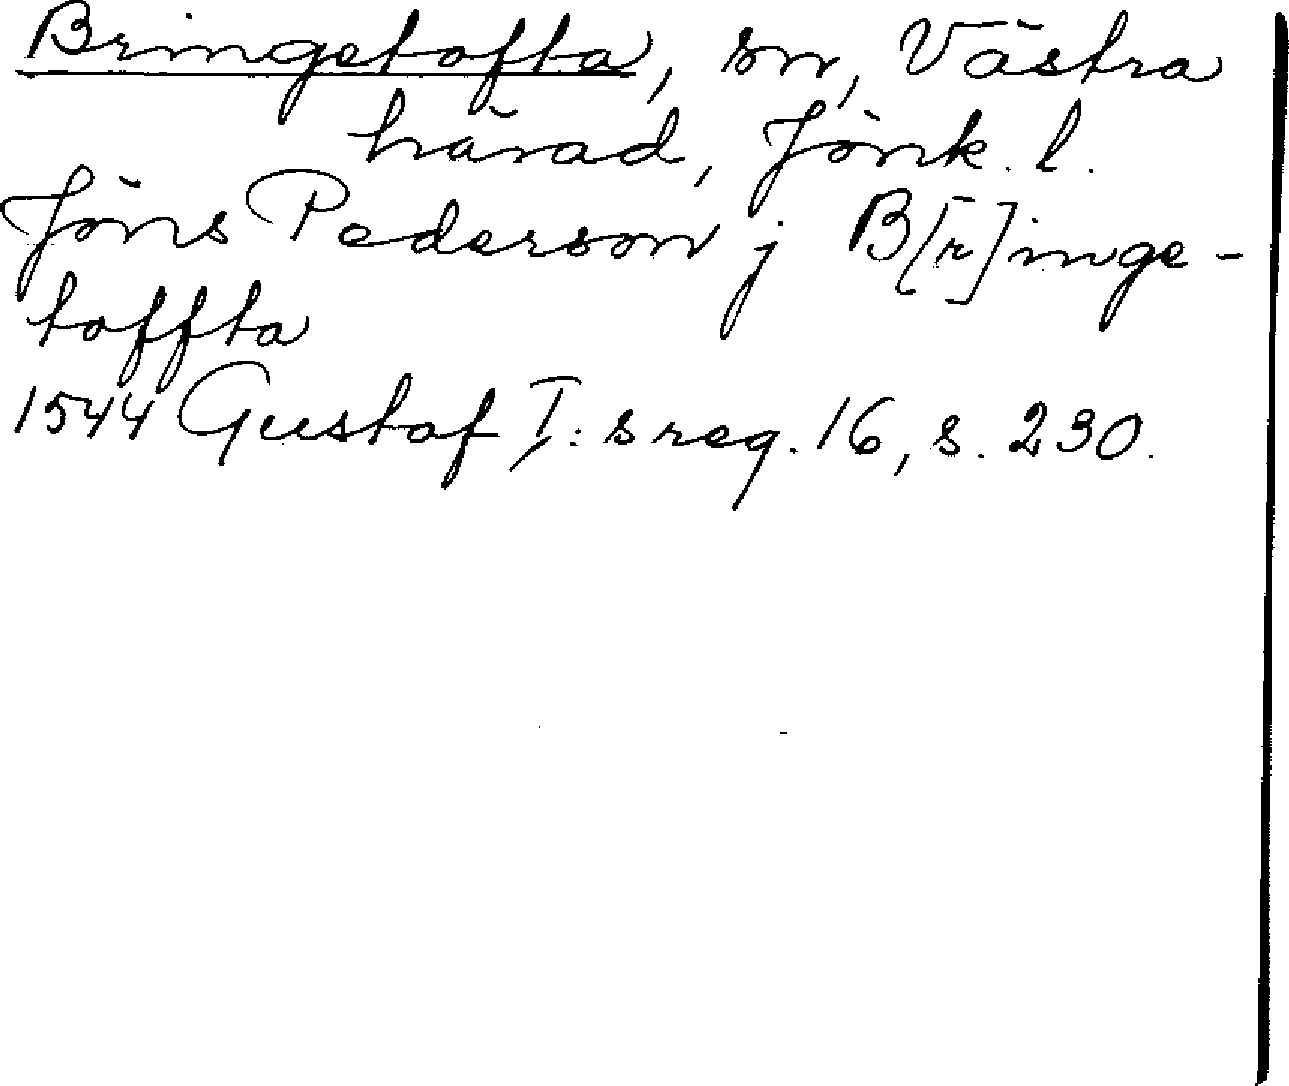 Bringetofta, sn, Västra
härad, Jönk. l.
Jöns Pederson j B[r]inge-
toffta
1544 Gustaf I:s reg. 16, s. 230.